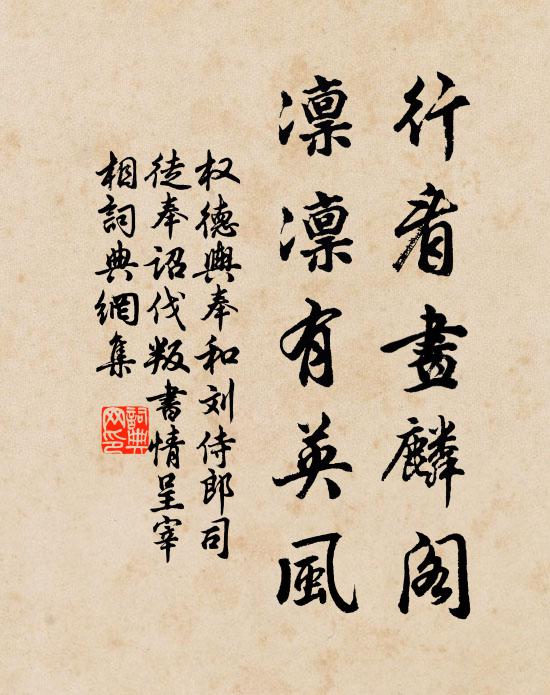 行看畫麟阁
凛凛有英風
权德輿奉和刘侍郎司
徒奉诏伐叛書情呈宰
相詞典網集
詞典
网印